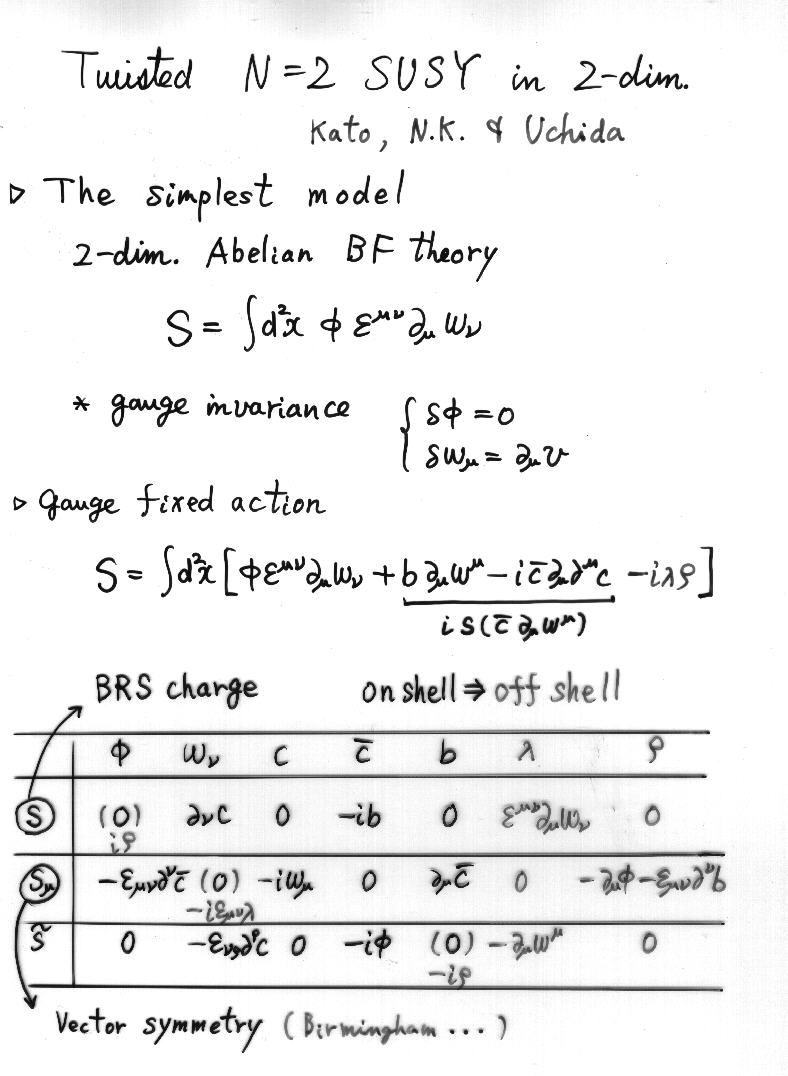 Twisted N=2 SUSY in 2-dim.
Kato, N.K. & Uchida
▷ The simplest model
2-dim. Abelian BF theory
S = ∫d²x φ ε^{μν} ∂_μ ω_ν
* gauge invariance { δφ = 0
δω_μ = ∂_μ v
▷ gauge fixed action
S = ∫d²x [φε^{μν}∂_μω_ν + b∂_μω^μ − i c̄ ∂_μ∂^μ c − iλρ]
i s(c̄ ∂_μω^μ)
BRS charge on shell ⇒ off shell
φ ω_ν c c̄ b λ ρ
s (0) ∂_νc 0 −ib 0 ε^{μν}∂_μω_ν 0
iρ
s_μ −ε_{μν}∂^νc̄ (0) −iω_μ 0 ∂_μc̄ 0 −∂_μφ−ε_{μν}∂^νb
−iε_{μν}λ
s̃ 0 −ε_{νρ}∂^ρc 0 −iφ (0) −∂_μω^μ 0
−iρ
Vector symmetry (Birmingham ...)